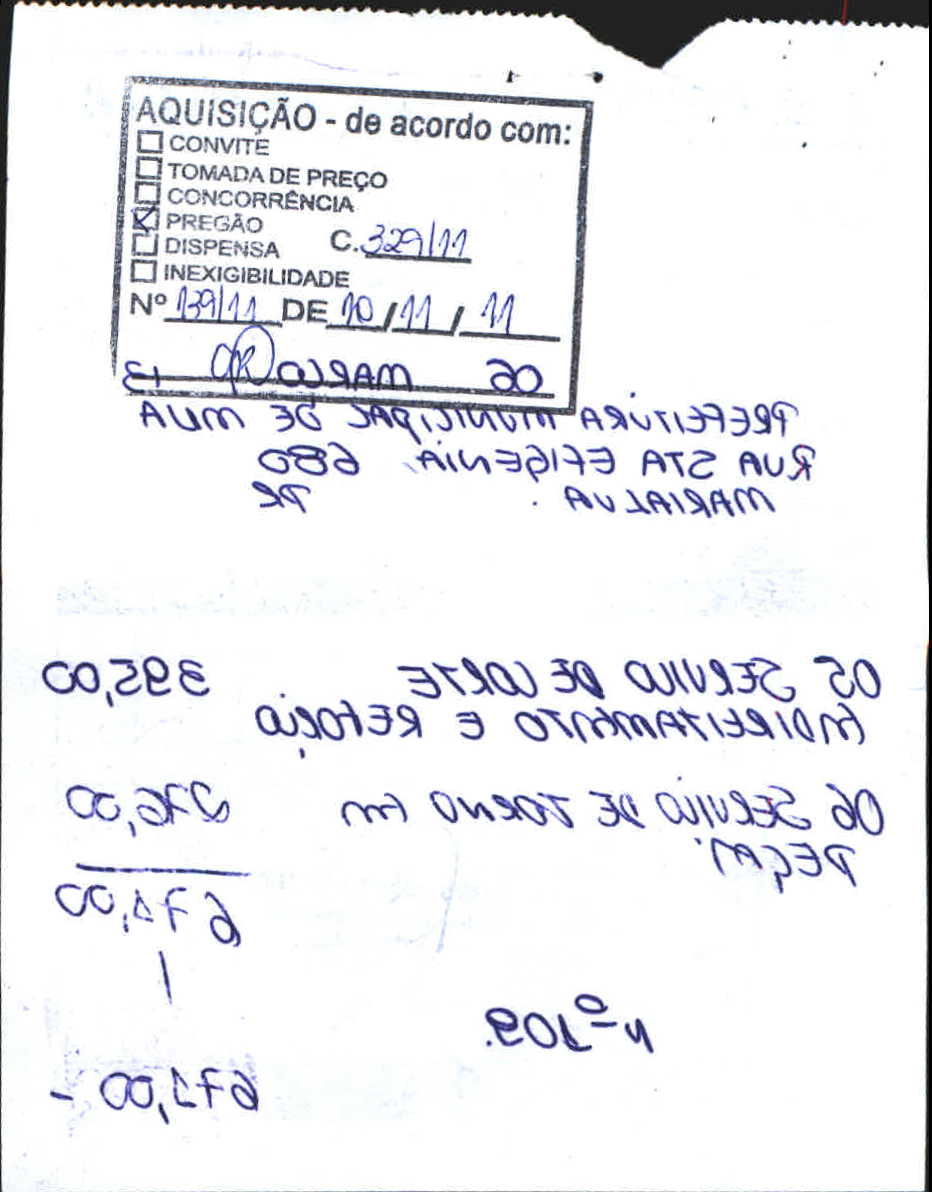 AQUISIÇÃO - de acordo com:
CONVITE
TOMADA DE PREÇO
CONCORRÊNCIA
PREGÃO
DISPENSA C. 329/11
INEXIGIBILIDADE
Nº 139/11 DE 10/11/11
06 MARCO 13
PREFEITURA MUNICIPAL DE MUA
RUA STA EFIGENIA. 680
MARIALVA. PR
05 SERVICO DE CORTE 395,00
ENDIREITAMENTO E REFORCO
06 SERVICO DE TORNO EM 276,00
PEÇAS.
671,00
nº 109.
671,00 -